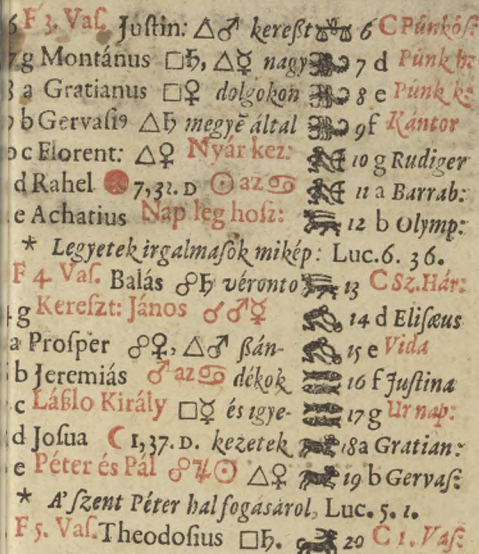 6 F 3. Vaſ. Juſtin: △♂ kereßt ♎ 6 C Púnkóſ:
7 g Montánus □♄, △☿ nagy ♏ 7 d Púnk hz
8 a Gratianus □♀ dolgokon ♏ 8 e Púnk k:
9 b Gervaſi⁹ △♄ megyẽ által ♏ 9 f Kántor
c Florent: △♀ Nyár kez: ♐ 10 g Rudiger
d Rahel 7,31. D ☉ az ♋ ♐ 11 a Barrab:
e Achatius Nap leg hoſz: ♑ 12 b Olymp:
* Legyetek irgalmaſok mikép: Luc. 6. 36.
F 4. Vaſ. Balás ☍♄ véronto ♑ 13 C Sz. Hár:
g Kereſzt: János ☌♂☿ ♒ 14 d Eliſæus
a Proſper ☍♀, △♂ ßán- ♒ 15 e Vida
b Jeremiás ♂ az ♋ dékok ♓ 16 f Juſtina
c Láßlo Király □☿ és igye- ♓ 17 g Ur nap:
d Joſua ☾ 1,37. D. kezetek ♈ 18 a Gratian:
e Péter és Pál ☍♃☉ △♀ ♈ 19 b Gervaſ:
* A' Szent Péter hal fogásárol, Luc. 5. 1.
F 5. Vaſ. Theodoſius □♄. ♉ 20 C 1. Vaſ: